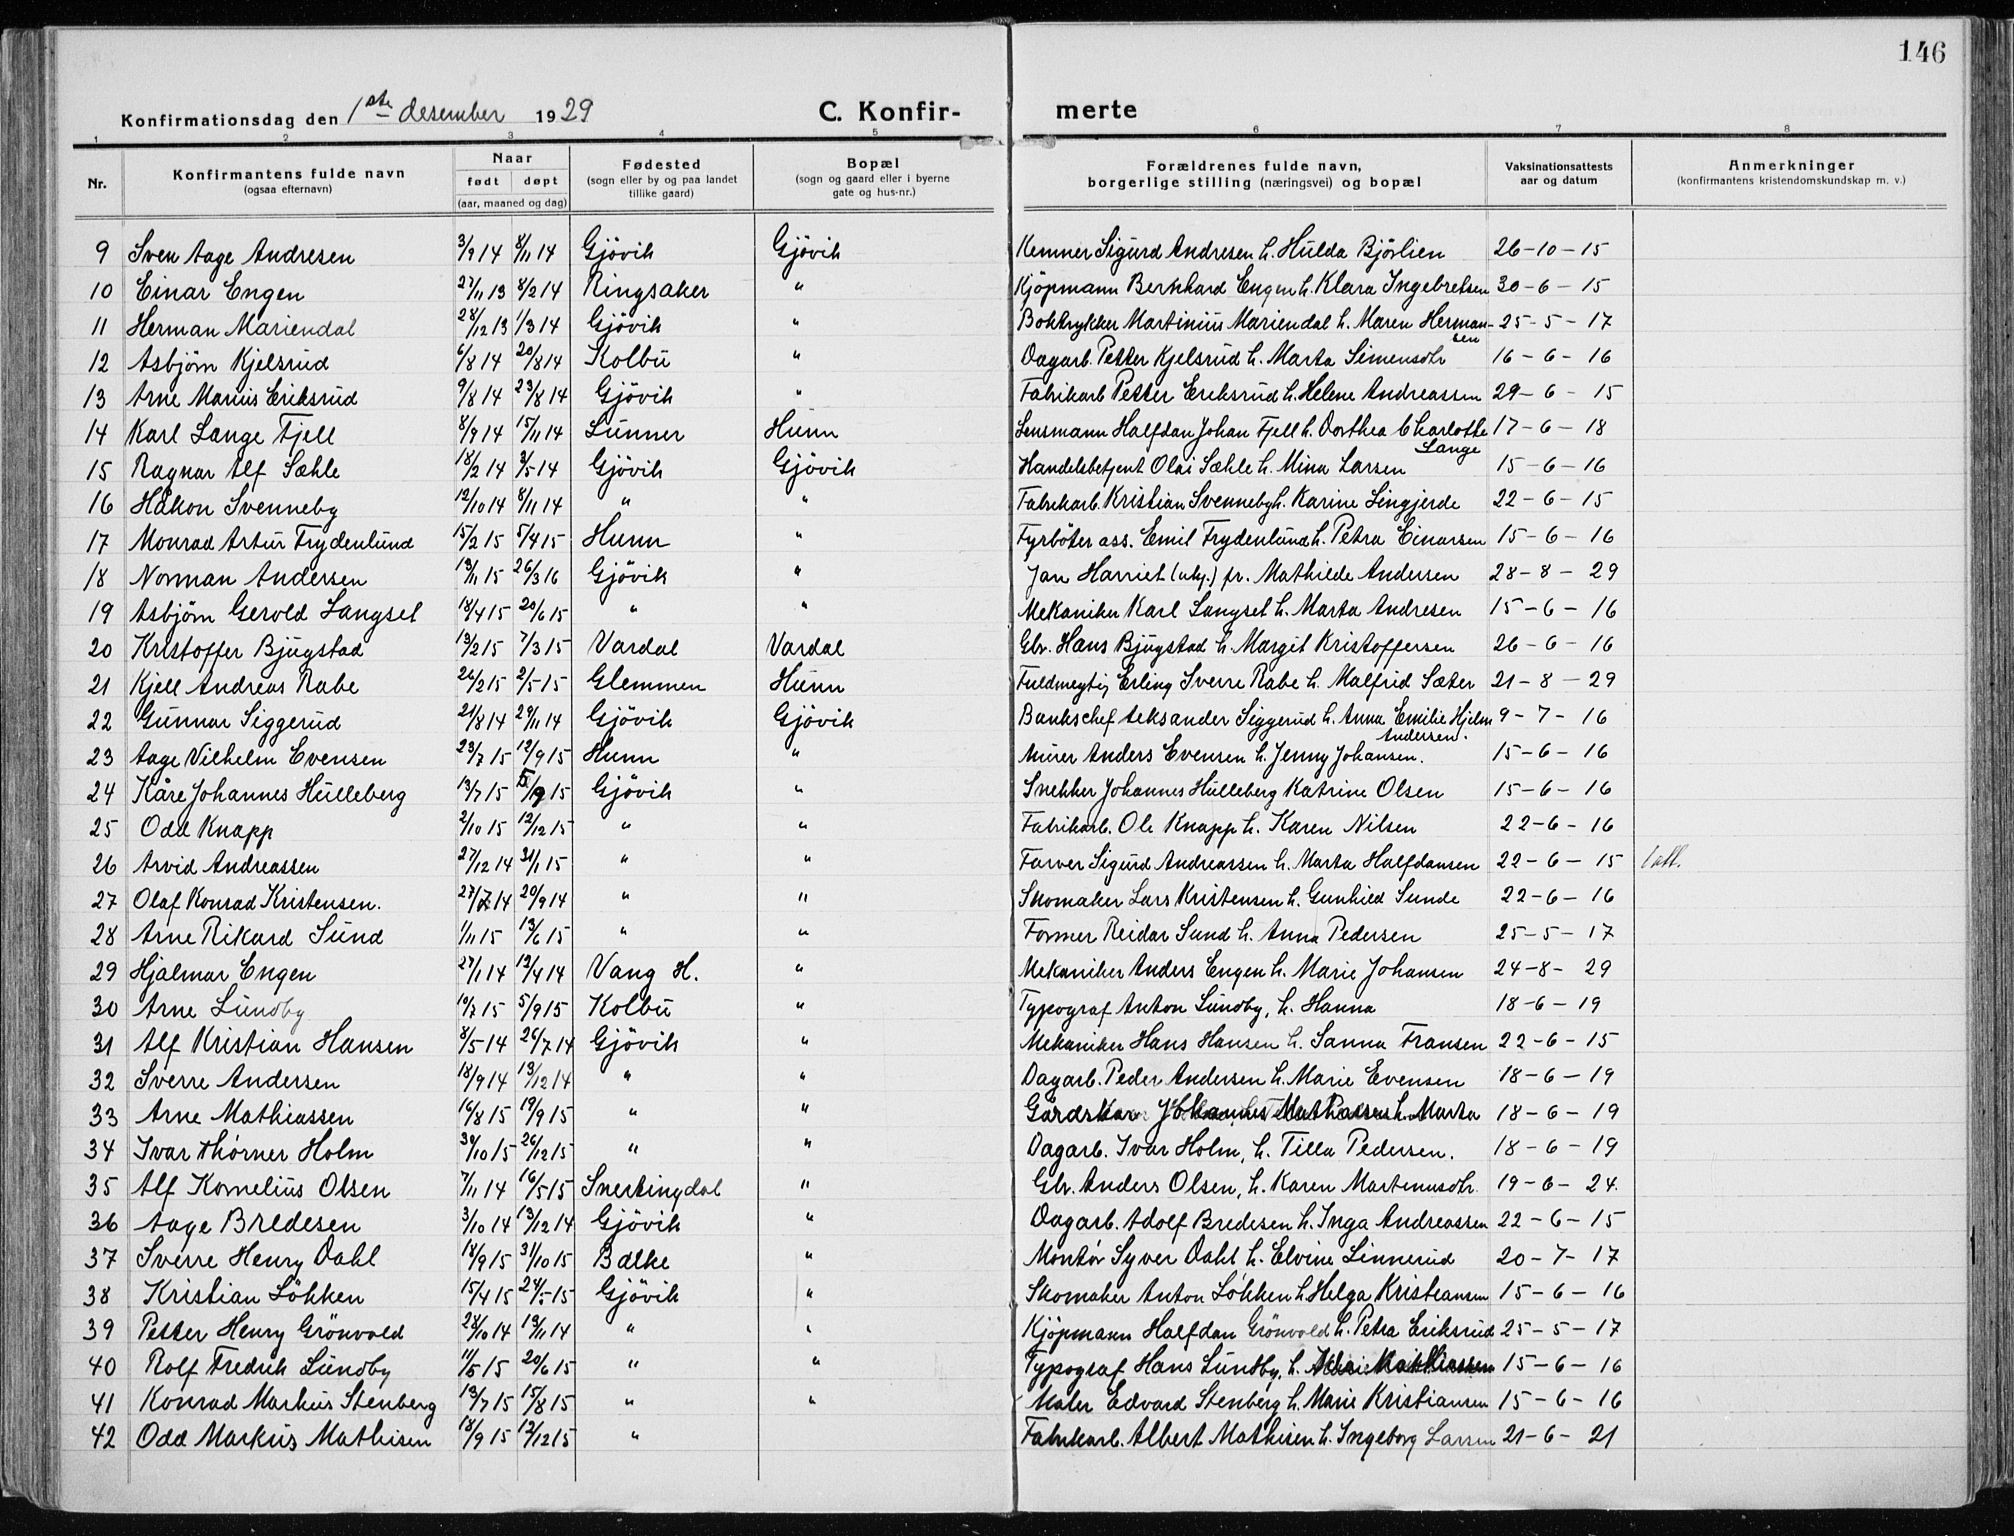 146
Konfirmationsdag den 1ste desember 1929 C. Konfir- merte
1 2 3 4 5 6 7 8
Nr. Konfirmantens fulde navn (ogsaa efternavn) Naar født døpt (aar, maaned og dag) Fødested (sogn eller by og paa landet tillike gaard) Bopæl (sogn og gaard eller i byerne gate og hus-nr.) Forældrenes fulde navn, borgerlige stilling (næringsvei) og bopæl Vaksinationsattests aar og datum Anmerkninger (konfirmantens kristendomskundskap m. v.)
9 Sven Aage Andresen 3/9 14 8/11 14 Gjövik Gjövik Kemner Sigurd Andresen h. Hulda Bjørlien 26-10-15
10 Einar Engen 27/11 13 8/2 14 Ringsaker " Kjöpmann Bernhard Engen h. Klara Ingebretsen 30-6-15
11 Herman Mariendal 28/12 13 1/3 14 Gjövik " Boktrykker Martinius Mariendal h. Maren Hermansen 25-5-17
12 Asbjørn Kjelsrud 6/8 14 20/8 14 Kolbu " Dagarb. Petter Kjelsrud h. Marta Simensdtr 16-6-16
13 Arne Marius Eriksrud 9/8 14 23/8 14 Gjövik " Fabrikarb Petter Eriksrud h. Helene Andreassen 29-6-15
14 Karl Lange Fjell 8/9 14 15/11 14 Lunner Hunn Lensmann Halfdan Johan Fjell h. Dorthea Charlotte Lange 17-6-18
15 Ragnar Alf Sæhle 18/2 14 3/5 14 Gjövik Gjövik Handelsbetjent Olai Sæhle h. Mina Larsen 15-6-16
16 Håkon Svenneby 12/10 14 8/11 14 " " Fabrikarb. Kristian Svenneby h. Karine Lingjerde 22-6-15
17 Monrad Artur Frydenlund 15/2 15 5/4 15 Hunn " Fyrböter ass. Emil Frydenlund h. Petra Einarsen 15-6-16
18 Norman Andersen 19/11 15 26/3 16 Gjövik " Jan Harriet (ubg.) pr. Mathilde Andersen 28-8-29
19 Asbjørn Gerold Langset 18/4 15 20/6 15 " " Mekaniker Karl Langset h. Marta Andresen 15-6-16
20 Kristoffer Bjugstad 13/2 15 7/3 15 Vardal Vardal Gbr. Hans Bjugstad h. Margit Kristoffersen 26-6-16
21 Kjell Andreas Rabe 26/2 15 2/5-15 Glemmen Hunn Fuldmegtig Erling Sverre Rabe h. Malfrid Sæter 21-8-29
22 Gunnar Siggerud 21/8 14 29/11 14 Gjövik Gjövik Bankschef Aleksander Siggerud h. Anna Emilie Hjelm Andersen. 9-7-16
23 Aage Vilhelm Evensen 23/7 15 12/9 15 Hunn " Murer Anders Evensen h. Jenny Johansen. 15-6-16
24 Kåre Johannes Hulleberg 13/7 15 5/9 15 Gjövik " Snekker Johannes Hulleberg Katrine Olsen 15-6-16
25 Odd Knapp 2/10 15 12/12 15 " " Fabrikarb. Ole Knapp h. Karen Nilsen 22-6-16
26 Arvid Andreassen 27/12 14 31/1 15 " " Farver Sigurd Andreassen h. Marta Halfdansen 22-6-15 1 att.
27 Olaf Konrad Kristensen. 27/7 14 20/9 14 " " Skomaker Lars Kristensen h. Gunhild Sunde 22-6-16
28 Arne Rikard Sund 1/11 15 13/6 15 " " Former Reidar Sund h. Anna Pedersen 25-5-17
29 Hjalmar Engen 27/1 14 12/4 14 Vang H. " Mekaniker Anders Engen h. Marie Johansen 24-8-29
30 Arne Lundby 10/7 15 5/9 15 Kolbu " Typograf Anton Lundby, h. Hanna 18-6-19
31 Alf Kristian Hansen 8/5 14 26/7 14 Gjövik " Mekaniker Hans Hansen h. Sanna Fransen 22-6-15
32 Sverre Andersen 18/9 14 13/12 14 " " Dagarb. Peder Andersen h. Marie Evensen 18-6-19
33 Arne Mathiassen 16/8 15 19/9 15 " " Gårdskar Johannes Mathiassen h. Marta 18-6-19
34 Ivar Thørner Holm 30/10 15 26/12 15 " " Dagarb. Ivar Holm, h. Tilla Pedersen. 18-6-19
35 Alf Kornelius Olsen 7/11 14 16/5 15 Snertingdal " Gbr. Anders Olsen, h. Karen Martinusdtr. 19-6-24.
36 Aage Bredesen 3/10 14 13/12 14 Gjövik " Dagarb. Adolf Bredesen h. Inga Andreassen 22-6-15
37 Sverre Henry Dahl 18/9 15 31/10 15 Balke " Montör Syver Dahl h. Elvine Linnerud 20-7-17
38 Kristian Lökken 15/4 15 24/5-15 Gjövik " Skomaker Anton Lökken h. Helga Kristiansen 15-6-16
39 Petter Henry Grönvold 28/10 14 19/11 14 " " Kjöpmann Halfdan Grönvold h. Petra Eriksrud 25-5-17
40 Rolf Fredrik Lundby 11/5 15 20/6 15 " " Typograf Hans Lundby, h. Mathiassen 15-6-16
41 Konrad Markus Stenberg 13/7 15 15/8 15 " " Maler Edvard Stenberg h. Marie Kristiansen 15-6-16
42 Odd Markus Mathisen 18/9 15 12/12 15 " Fabrikarb. Albert Mathisen h. Ingeborg Larsen 21-6-21